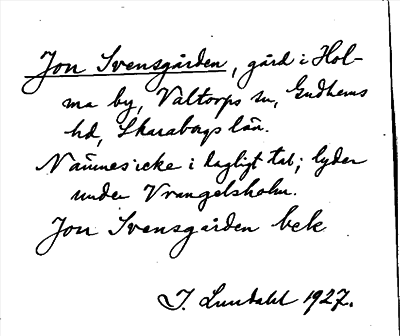 Jon Svensgården, gård i Hol-
ma by, Valtorps sn, Gudhems
hd, Skaraborgs län.
Nämnes icke i dagligt tal; lyder
under Vrangelsholm.
Jon Svensgården bek
J. Lundahl 1927.